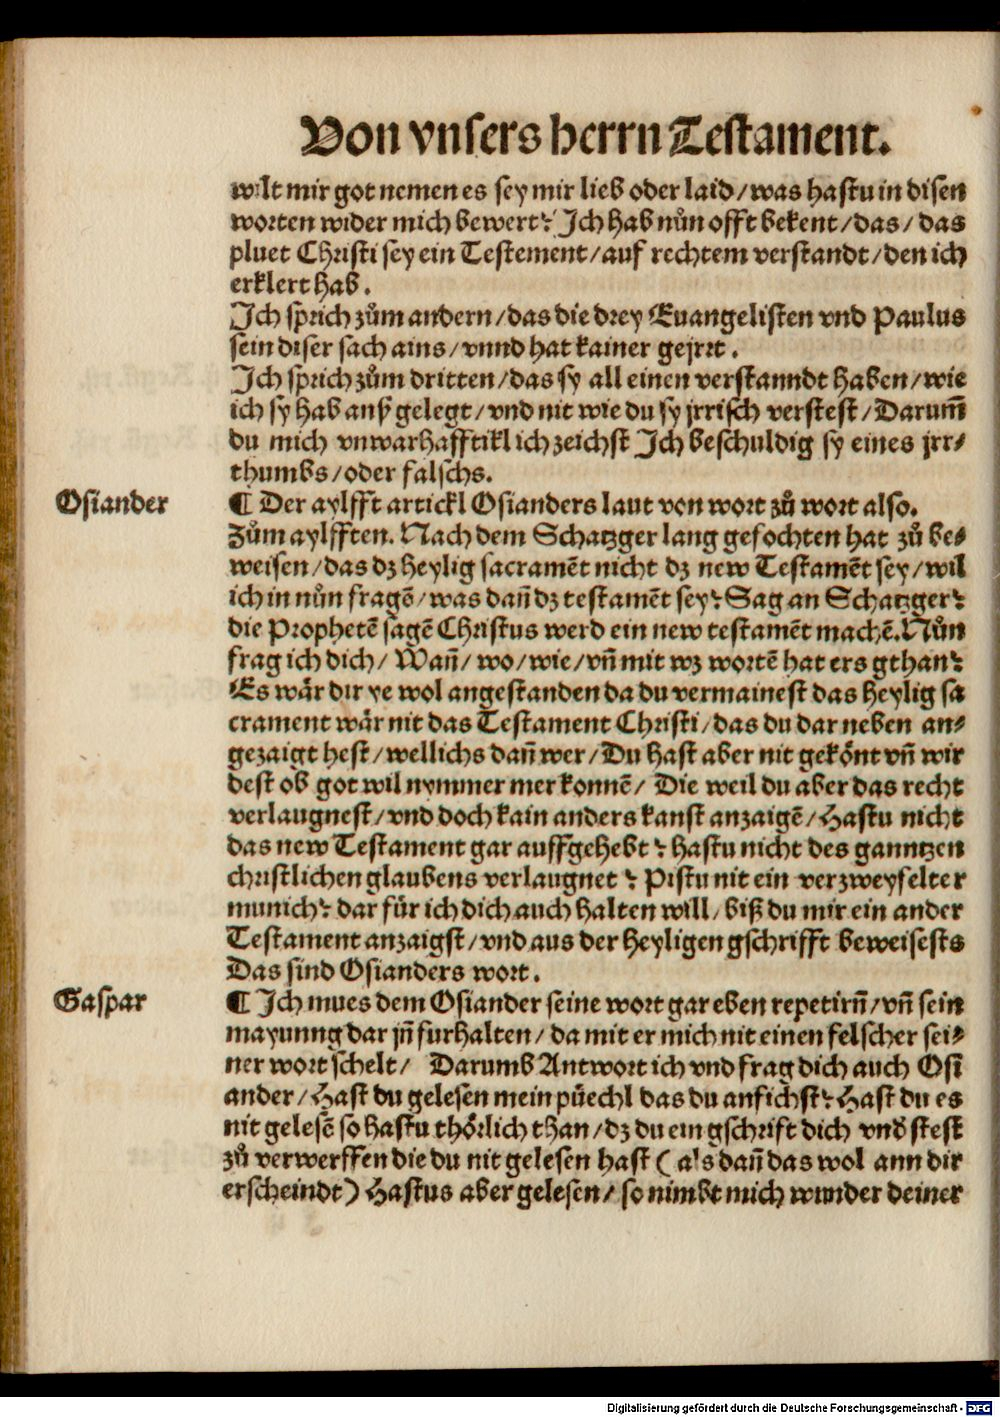 Von vnsers herrn Testament.
wilt mir got nemen es sey mir lieb oder laid/was hastu in disen
worten wider mich bewert? Jch hab nůn offt bekent/das/das
pluet Christi sey ein Testement/auf rechtem verstandt/den ich
erklert hab.
Jch sprich zům andern/das die drey Euangelisten vnd Paulus
sein diser sach ains/vnnd hat kainer gejrrt.
Jch sprich zům dritten/das sy all einen verstanndt haben/wie
ich sy hab auß gelegt/vnd nit wie du sy jrrisch verstest/Darum̄
du mich vnwarhafftiklich zeichst Jch beschuldig sy eines jrr-
thumbs/oder falschs.
Osiander
¶ Der aylfft artickl Osianders laut von wort zů wort also.
Zům aylfften. Nach dem Schatzger lang gefochten hat zů be-
weisen/das dz heylig sacramēt nicht dz new Testamēt sey/wil
ich in nůn fragē/was dañ dz testamēt sey? Sag an Schatzger?
die Prophetē sagē Christus werd ein new testamēt machē. Nůn
frag ich dich/Wañ/wo/wie/vñ mit wz wortē hat ers gthan?
Es wår dir ye wol angestanden da du vermainest das heylig sa
crament wår nit das Testament Christi/das du dar neben an-
gezaigt hest/wellichs dañ wer/Du hast aber nit gekönt vñ wir
dest ob got wil nymmer mer konnē/Die weil du aber das recht
verlaugnest/vnd doch kain anders kanst anzaigē/Hastu nicht
das new Testament gar auffgehebt? hastu nicht des ganntzen
christlichen glaubens verlaugnet? Pistu nit ein verzweyfelter
munich? dar für ich dich auch halten will/biß du mir ein ander
Testament anzaigst/vnd aus der heyligen gschrifft beweisests
Das sind Osianders wort.
Gaspar
¶ Jch mues dem Osiander seine wort gar eben repetirñ/vñ sein
mayunng dar jñ furhalten/da mit er mich nit einen felscher sei-
ner wort schelt/ Darumb Antwort ich vnd frag dich auch Osi
ander/Hast du gelesen mein püechl das du anfichst? Hast du es
nit gelesē so hastu thörlich than/dz du ein gschrift dich vnd̄ stest
zů verwerffen die du nit gelesen hast (als dañ das wol ann dir
erscheindt) Hastus aber gelesen/so nimbt mich wunder deiner
Digitalisierung gefördert durch die Deutsche Forschungsgemeinschaft - DFG